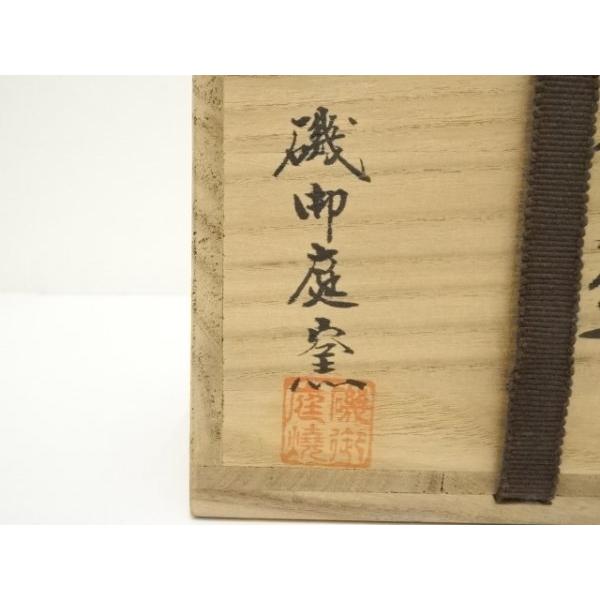 磯御庭窯
磯御庭燒